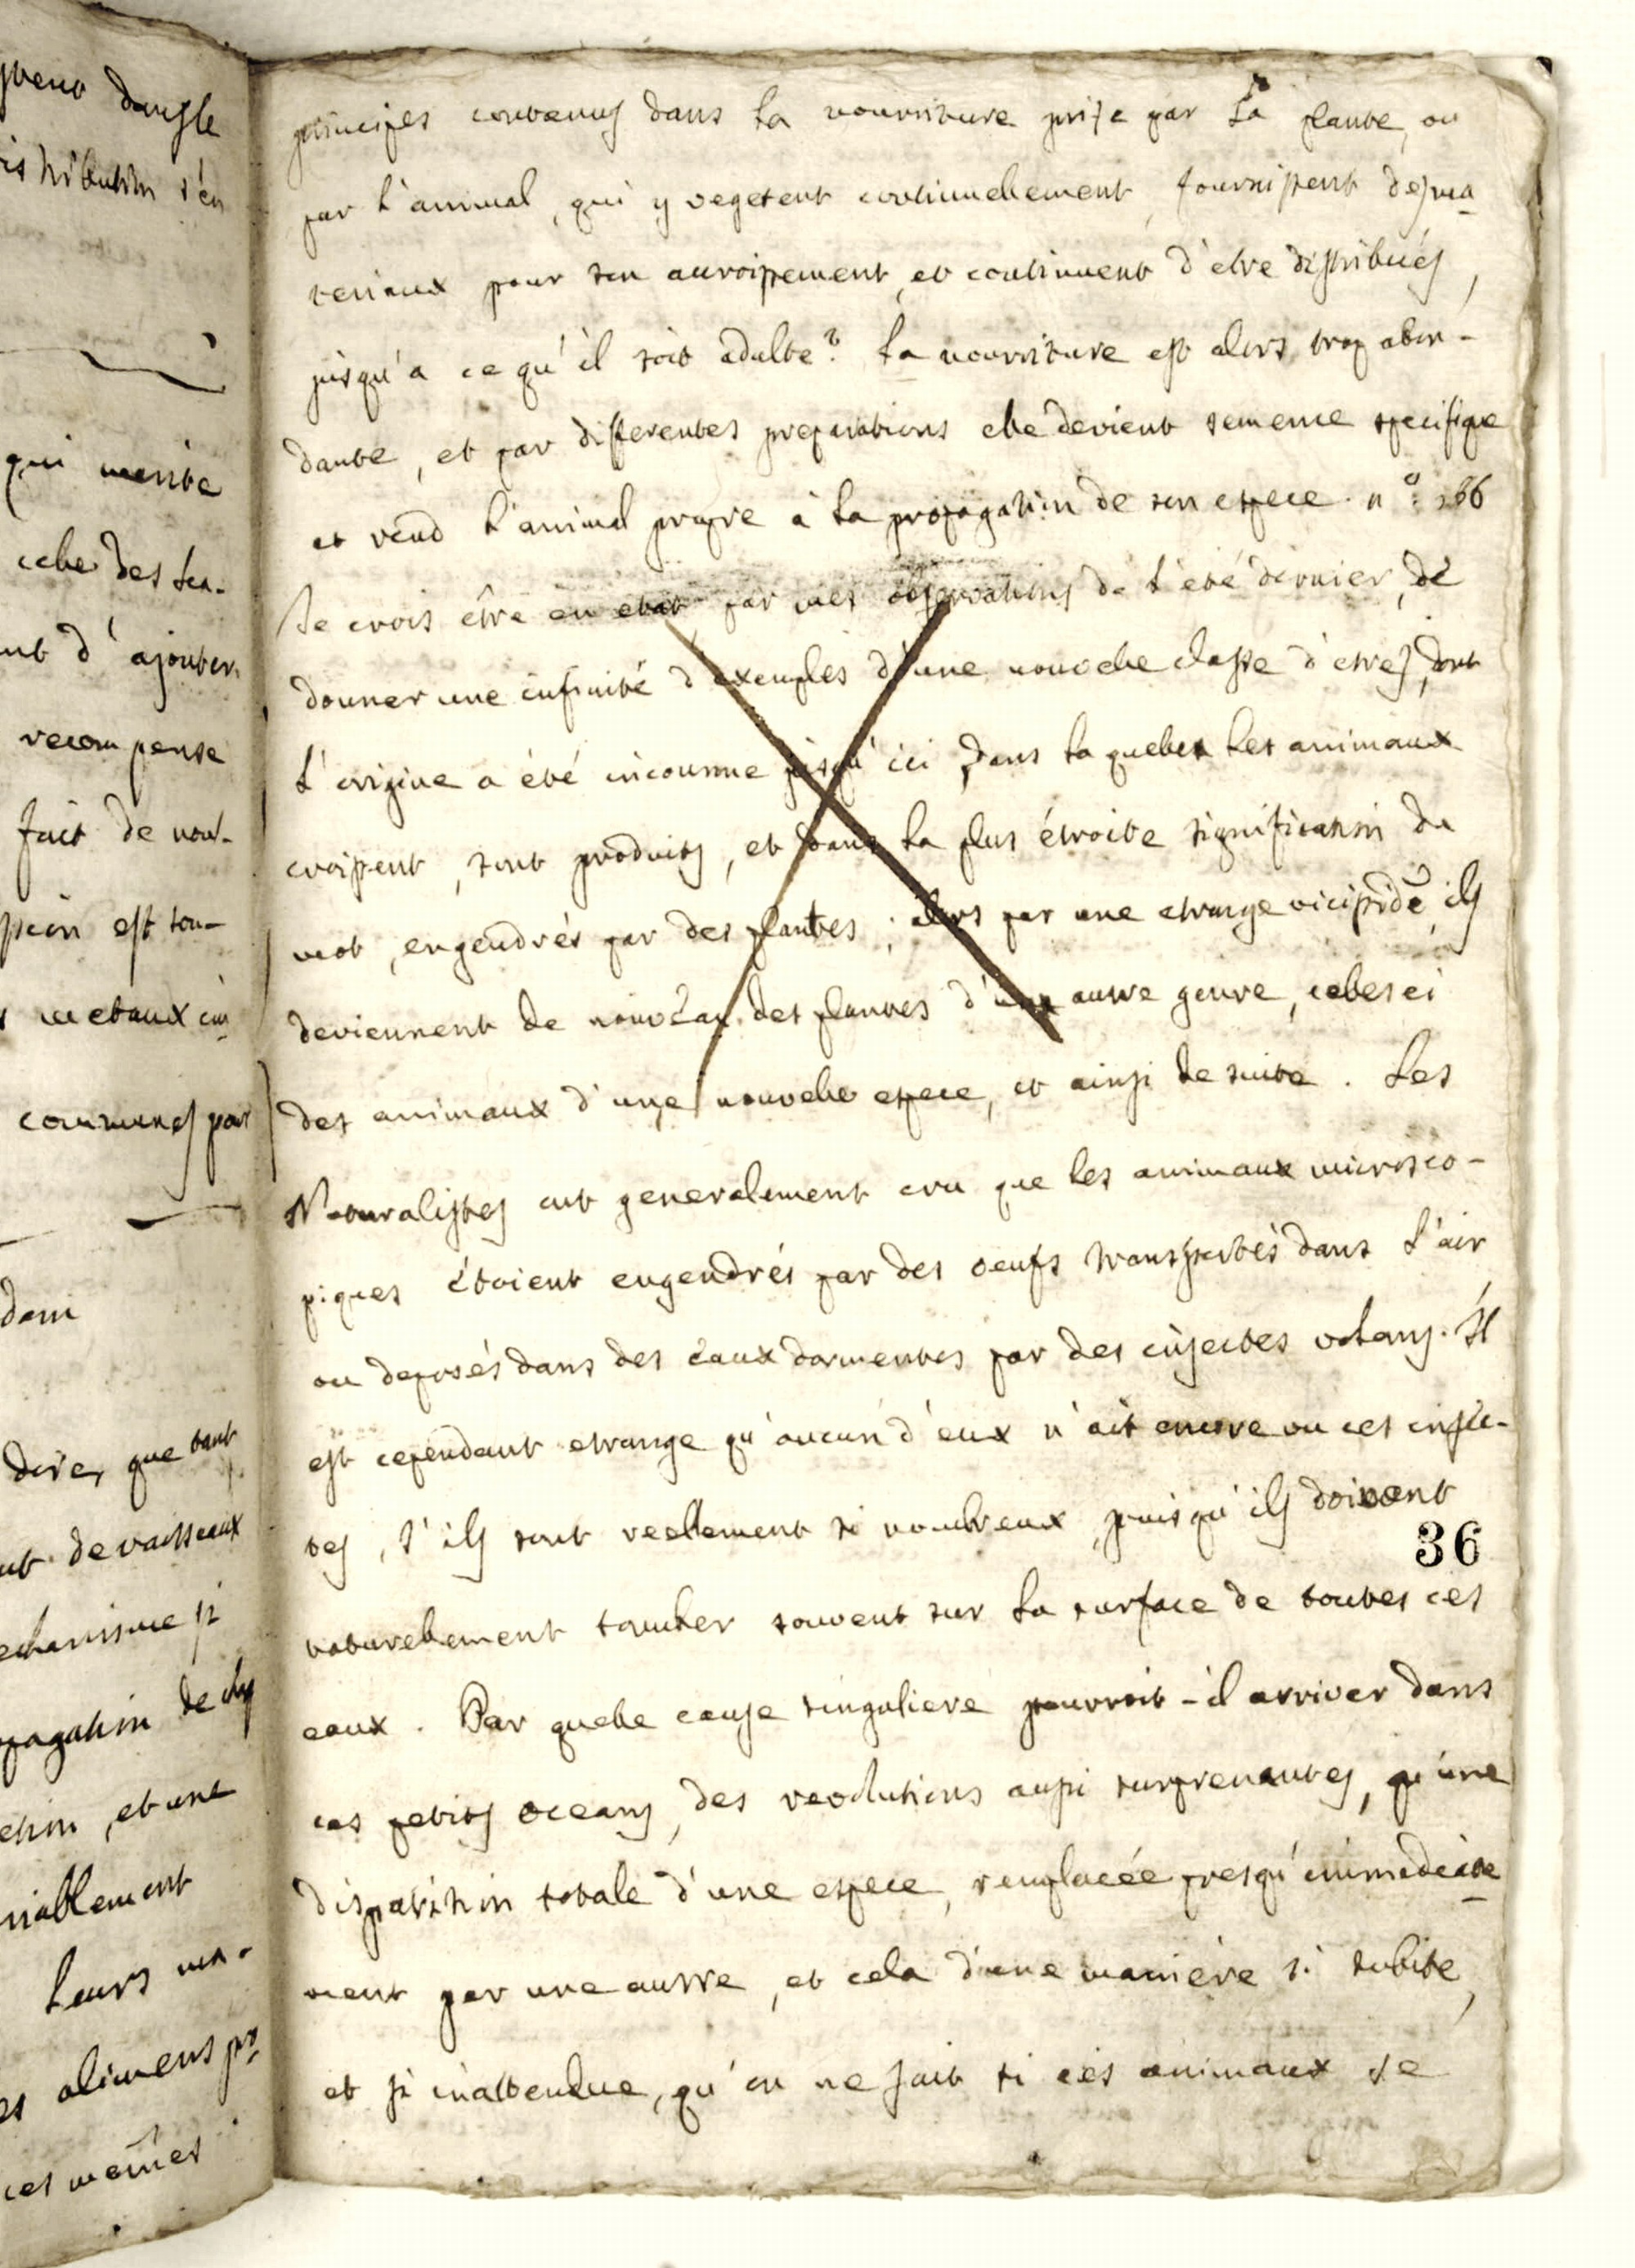 pveut dansle
istribution s'en
qui merite
celle des sea-
nt d'ajouter
recompense
fait de nou-
ssion est sou-
metaux in-
communes par
dam
dire, que tant
nt de vaisseaux
echanisme si
opagation de
ction, et une
riablement
leurs ma-
es alimens pr
ces memes
principes contenus dans la nourriture prise par la plante, ou
par l'animal, qui y vegetent continuellement, fournissent des ma-
teriaux pour son accroissement, et continuent d'etre distribués,
jusqu'a ce qu'il soit adulte? La nourriture est alors trop abon-
dante, et par differentes preparations elle devient semence specifique
et rend l'animal propre à la propagation de son espece. n°: 366
Je crois être en etat par mes observations de l'eté dernier, de
donner une infinité d'exemples d'une nouvelle classe d'etres, dont
l'origine a été inconnue jusqu'ici, dans laquelle les animaux
croissent, sont produits, et dans la plus étroite signification du
mot, engendrés par des plantes; alors par une etrange vicissidé ils
deviennent de nouveau des plantes d'un autre genre, celles ci
des animaux d'une nouvelle espece, et ainsi de suite. Les
Naturalistes ont generalement cru que les animaux microsco-
piques étoient engendrés par des oeufs transportés dans l'air
ou deposés dans des eaux dormentes par des injectes volans. Il
est cependant etrange qu'aucun d'eux n'ait encore vu ces insec-
tes, s'ils sont reellement si nombreux, puisqu'ils doivent
36
naturellement tomber souvent sur la surface de toutes ces
eaux. Par quelle cause singuliere pourroit-il arriver dans
ces petits oceans, des revolutions aussi surprenantes, qu'une
disparition totale d'une espece, remplacée presqu'immediate-
ment par une autre, et cela d'une maniére si subite,
et si inattendue, qu'on ne sait si ces animaux se